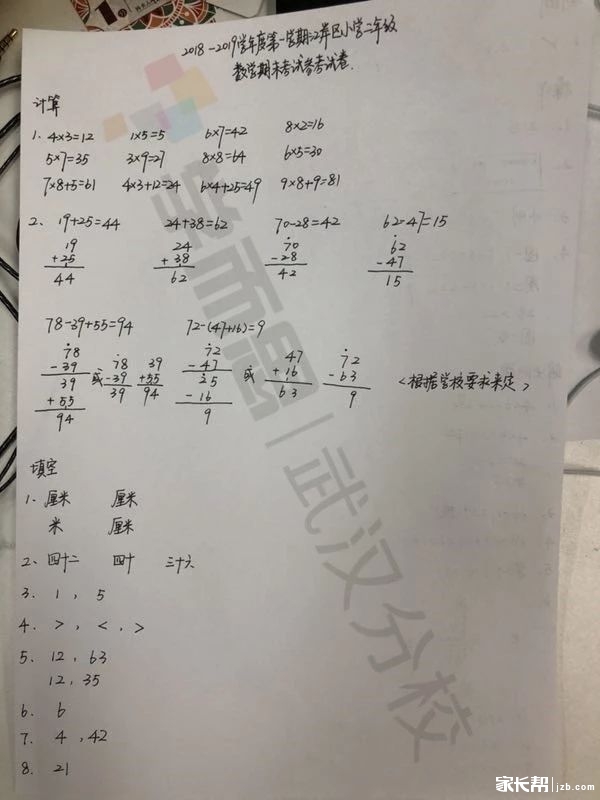 2018-2019学年度第一学期江岸区小学二年级
数学期末考试卷考试卷.
计算
1. 4×3=12 1×5=5 6×7=42 8×2=16
5×7=35 3×9=27 8×8=64 6×5=30
7×8+5=61 4×3+12=24 6×4+25=49 9×8+9=81
2、 19+25=44 24+38=62 70-28=42 62-47=15
19 24 70 62
+25 +38 -28 -47
44 62 42 15
78-39+55=94 72-(47+16)=9
78 78 39 72 47 72
-39 或 -39 +55 -47 或 +16 -63 <根据学校要求来定>
39 39 94 25 63 9
+55 -16
94 9
填空
1. 厘米 厘米
米 厘米
2、 四十二 四十 三十六
3. 1, 5
4. >, <, >
5. 12, 63
12, 35
6. 6
7. 4, 42
8. 21
学而思|武汉分校
家长帮 jzb.com